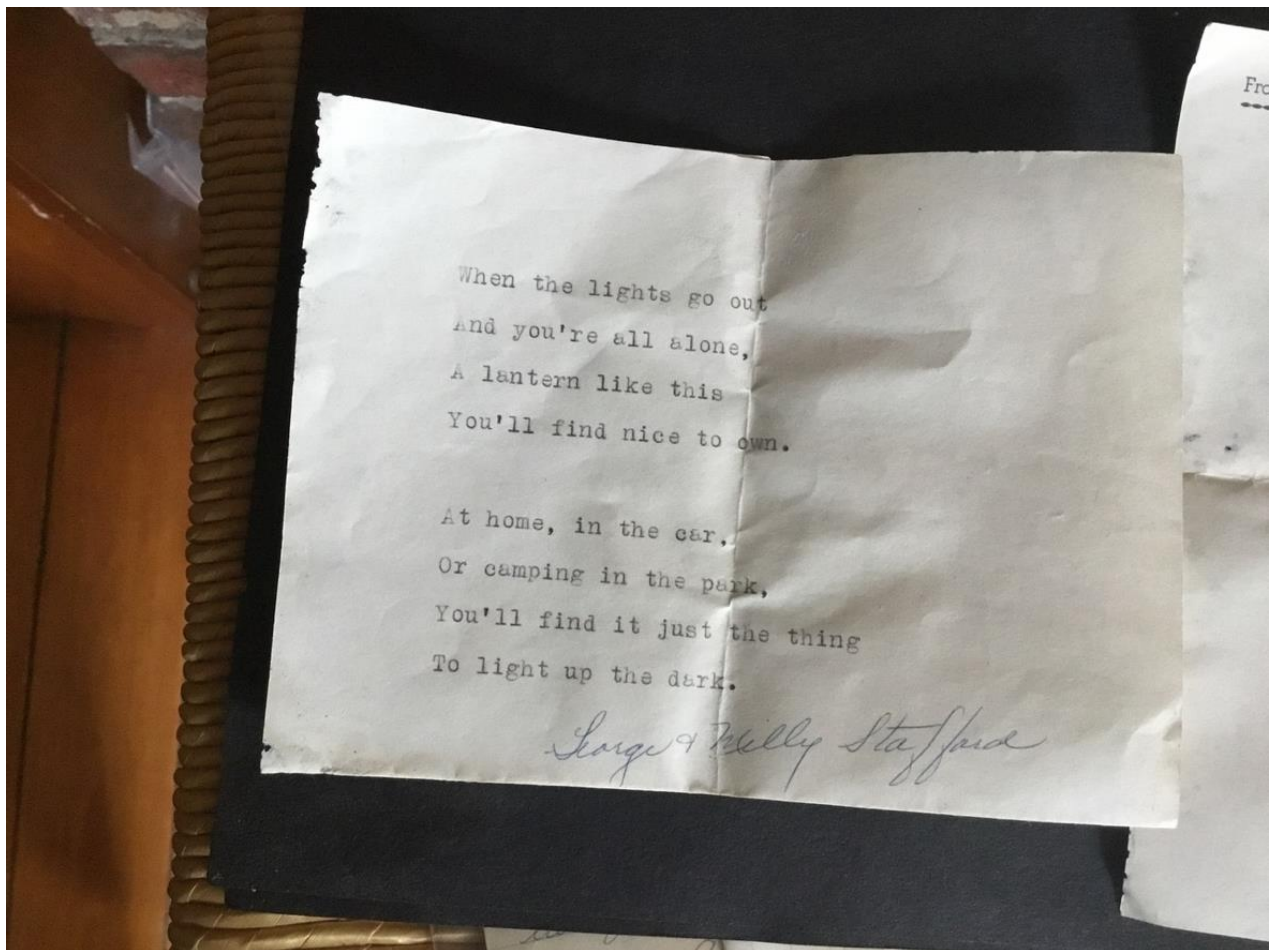 When the lights go out
And you're all alone,
A lantern like this
You'll find nice to own.
At home, in the car,
Or camping in the park,
You'll find it just the thing
To light up the dark.
George & Stafford
Fro